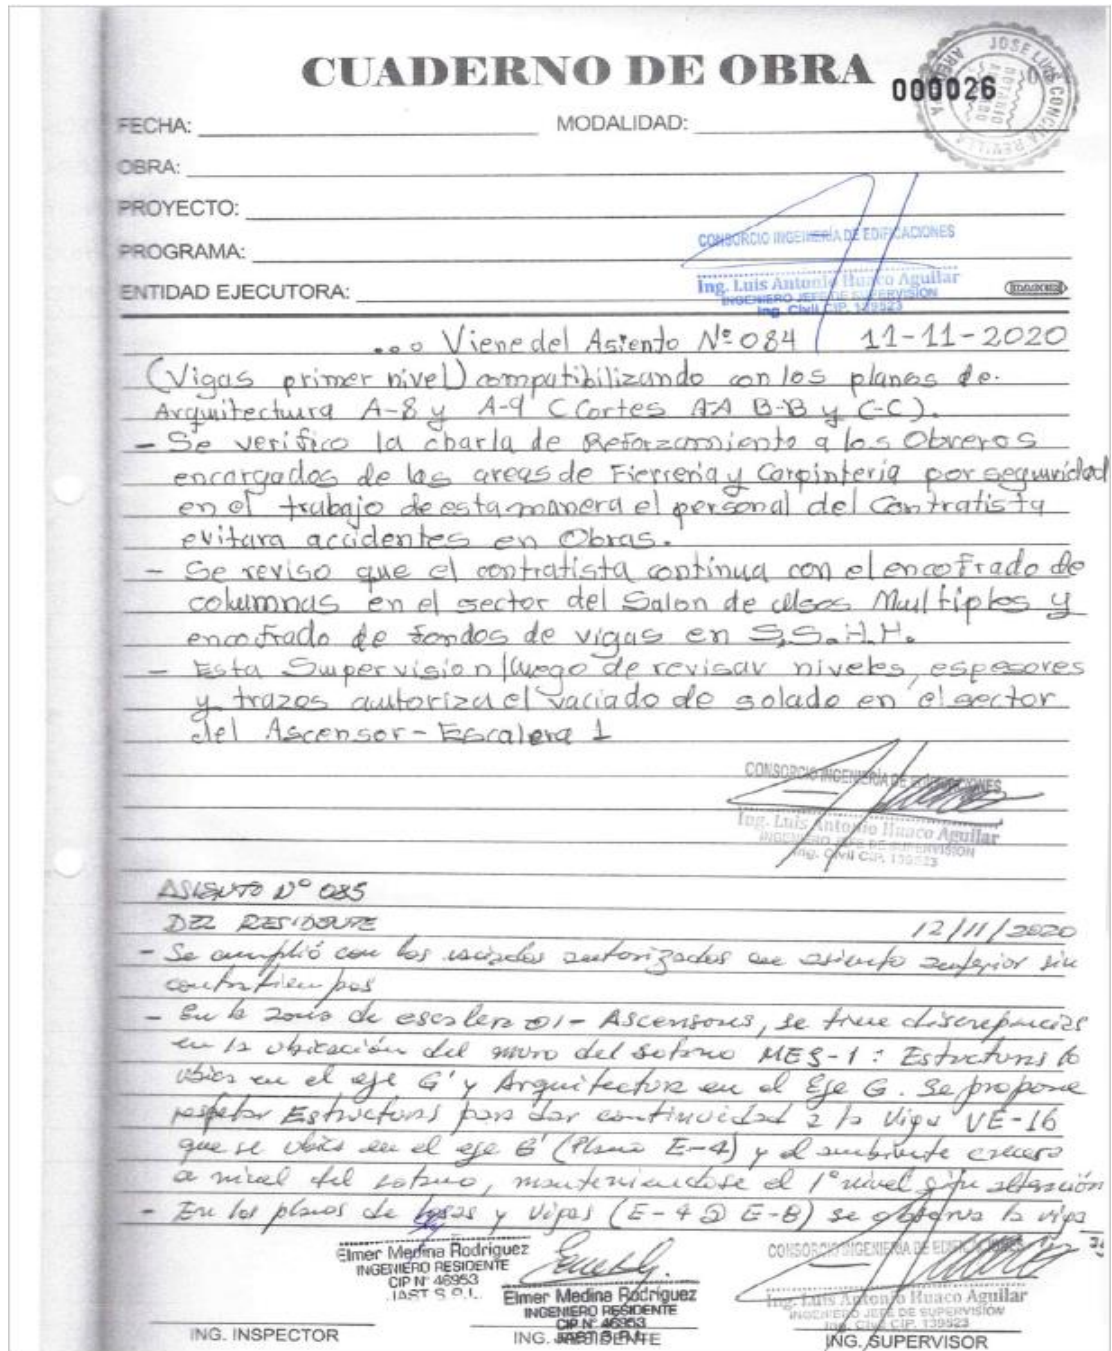 CUADERNO DE OBRA
000026
JOSE LUIS CONCHA REVILLA
NOTARIO
FECHA: MODALIDAD:
OBRA:
PROYECTO:
PROGRAMA:
ENTIDAD EJECUTORA:
CONSORCIO INGENIERÍA DE EDIFICACIONES
Ing. Luis Antonio Huaco Aguilar
INGENIERO JEFE DE SUPERVISIÓN
Ing. Civil CIP. 139523
... Viene del Asiento Nº 084 11-11-2020
(Vigas primer nivel) compatibilizando con los planos de.
Arquitectura A-8 y A-9 (Cortes A-A B-B y C-C).
- Se verifico la charla de Reforzamiento a los Obreros
encargados de las areas de Fierreria y Carpinteria por seguridad
en el trabajo de esta manera el personal del Contratista
evitara accidentes en Obras.
- Se reviso que el contratista continua con el encofrado de
columnas en el sector del Salon de Usos Multiples y
encofrado de fondos de vigas en S.S.H.H.
- Esta Supervision luego de revisar niveles, espesores
y trazos autoriza el vaciado de solado en el sector
del Ascensor - Escalera 1
CONSORCIO INGENIERÍA DE EDIFICACIONES
Ing. Luis Antonio Huaco Aguilar
INGENIERO JEFE DE SUPERVISIÓN
Ing. Civil CIP. 139523
ASIENTO N° 085
DEL RESIDENTE 12/11/2020
- Se cumplió con los vaciados autorizados en asiento anterior sin
contratiempos
- En la zona de escalera 01 - Ascensores, se tiene discrepancias
en la ubicación del muro del sotano MES-1: Estructuras lo
ubica en el eje G' y Arquitectura en el Eje G. Se propone
respetar Estructuras para dar continuidad a la Viga VE-16
que se ubica en el eje G' (Plano E-4) y el ambiente crecera
a nivel del sotano, manteniendose el 1° nivel sin alteración
- En los planos de losas y vigas (E-4 @ E-8) se observa la viga
Elmer Medina Rodriguez
INGENIERO RESIDENTE
CIP N° 46953
JAST S.R.L.
Elmer Medina Rodriguez
INGENIERO RESIDENTE
CIP N° 46953
JAST S.R.L.
CONSORCIO INGENIERÍA DE EDIFICACIONES
Ing. Luis Antonio Huaco Aguilar
INGENIERO JEFE DE SUPERVISIÓN
Ing. Civil CIP. 139523
ING. INSPECTOR ING. RESIDENTE ING. SUPERVISOR